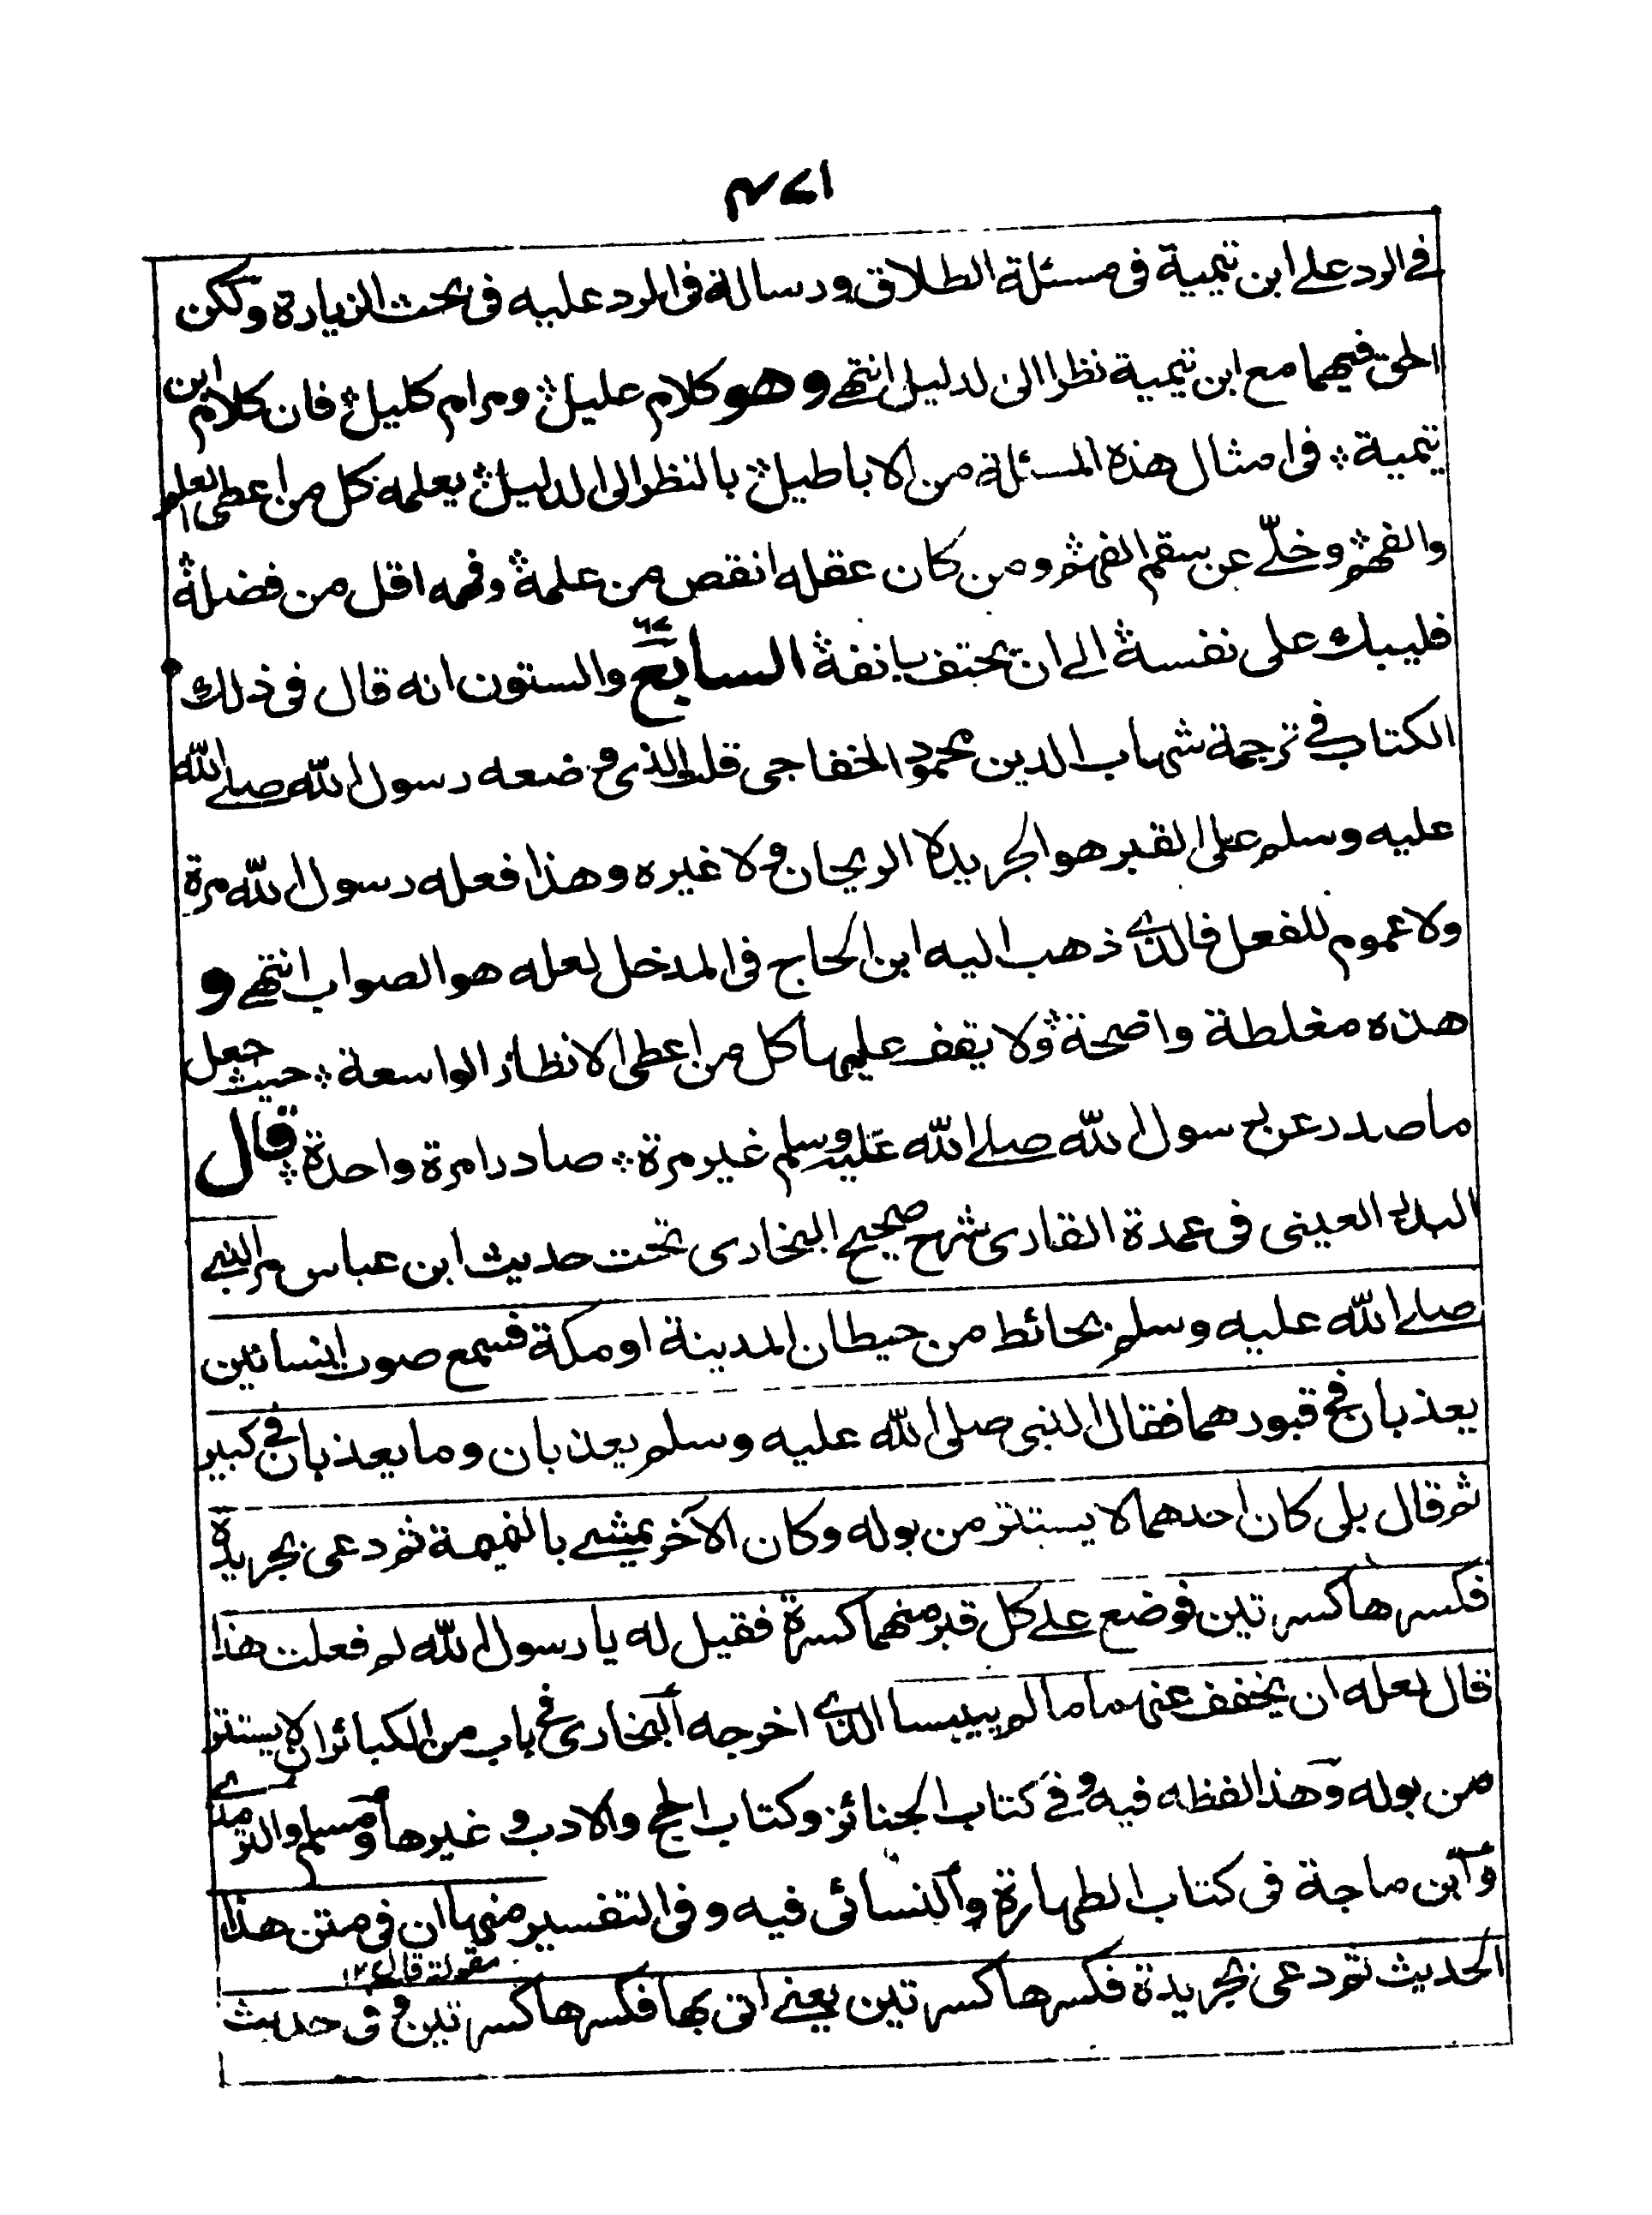 ٤٧١
في الرد على ابن تيمية في مسئلة الطلاق ورسالة في الرد عليه في بحث الزيارة ولكن
الحق فيهما مع ابن تيمية نظرا الى لدليل انتهى وهو كلام عليل ومرام كليل فان كلام ابن
تيمية في امثال هذه المسئلة من الاباطيل بالنظر الى الدليل يعلمه كل من اعطى العلم
والفهم وخلّى عن سقم الفهم ومن كان عقله انقص من علمه وفهمه اقل من فضله
فليبك على نفسه الى ان يحتف بانفه السابع والستون انه قال في ذلك
٦٧
الكتاب في ترجمة شهاب الدين محمود الخفاجي قلت الذي وضعه رسول الله صلى الله
عليه وسلم على القبر هو الجريد لا الريحان ولا غيره وهذا فعله رسول الله مرة
ولا عموم للفعل فالذي ذهب اليه ابن الحاج في المدخل لعله هو الصواب انتهى و
هذه مغلطة واضحة ولا يقف عليها كل من اعطى الانظار الواسعة حيث جعل
ما صدر عن رسول الله صلى الله عليه وسلم غير مرة صادرا مرة واحدة قال
البدر العيني في عمدة القاري شرح صحيح البخاري تحت حديث ابن عباس مر النبي
صلى الله عليه وسلم بحائط من حيطان المدينة او مكة فسمع صوت انسانين
يعذبان في قبورهما فقال النبي صلى الله عليه وسلم يعذبان وما يعذبان في كبير
ثم قال بلى كان احدهما لا يستتر من بوله وكان الآخر يمشي بالنميمة ثم دعى بجريدة
فكسرها كسرتين فوضع على كل قبر منهما كسرة فقيل له يا رسول الله لم فعلت هذا
قال لعله ان يخفف عنهما ما لم ييبسا الذي اخرجه البخاري في باب من الكبائر ان لا يستتر
من بوله وهذا لفظه فيه وفي كتاب الجنائز وكتاب الحج والادب وغيرها ومسلم والترمذي
وابن ماجة في كتاب الطهارة والنسائي فيه وفي التفسير منها ان في متن هذا
مقولة قال ١٢
الحديث ثم دعى بجريدة فكسرها كسرتين يعني اتى بها فكسرها كسرتين وفي حديث